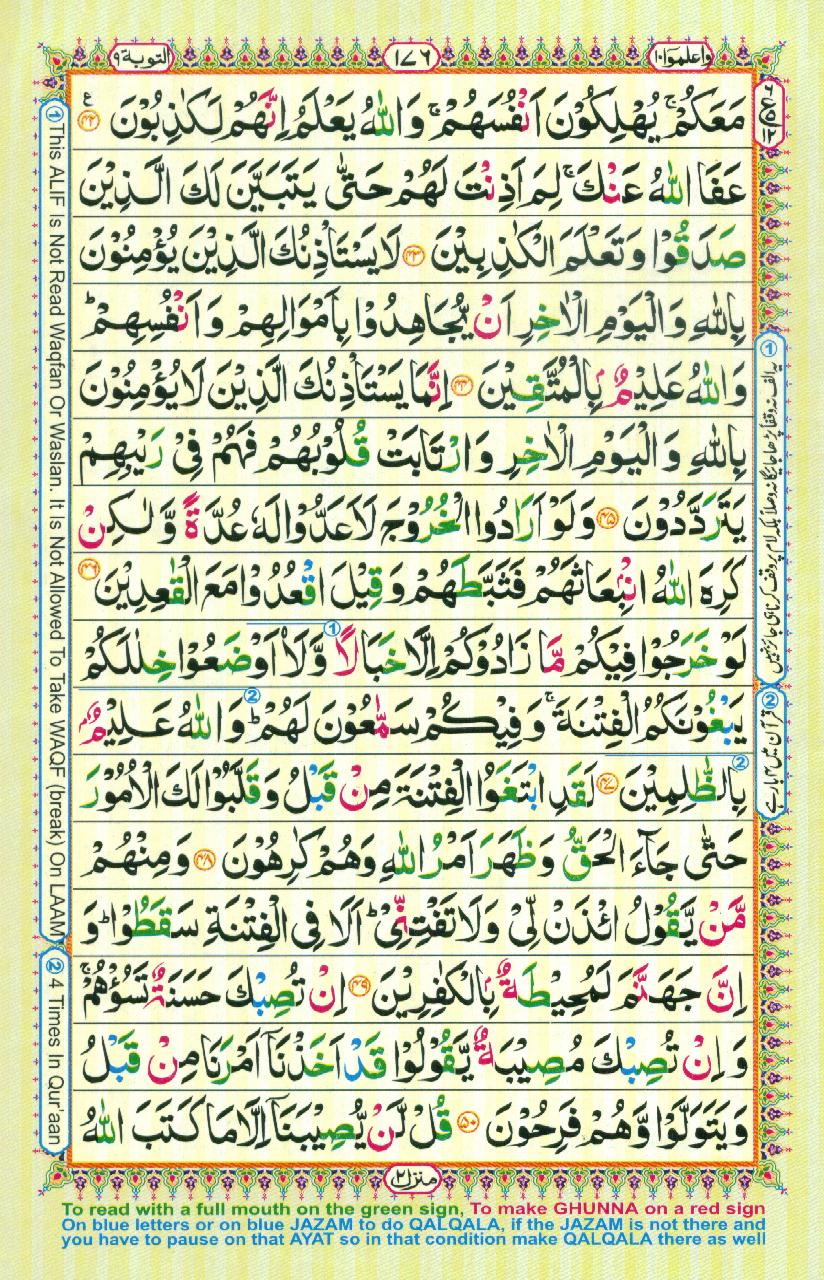 واعلموا ١٠
١٧٦
التوبة ٩
مَعَكُمْ ۚ يُهْلِكُوْنَ اَنْفُسَهُمْ ۚ وَاللّٰهُ يَعْلَمُ اِنَّهُمْ لَكٰذِبُوْنَ ﴿۴۲﴾ ع
عَفَا اللّٰهُ عَنْكَ ۚ لِمَ اَذِنْتَ لَهُمْ حَتّٰى يَتَبَيَّنَ لَكَ الَّذِيْنَ
صَدَقُوْا وَتَعْلَمَ الْكٰذِبِيْنَ ﴿۴۳﴾ لَا يَسْتَاْذِنُكَ الَّذِيْنَ يُؤْمِنُوْنَ
بِاللّٰهِ وَالْيَوْمِ الْاٰخِرِ اَنْ يُّجَاهِدُوْا بِاَمْوَالِهِمْ وَاَنْفُسِهِمْ ؕ
وَاللّٰهُ عَلِيْمٌۢ بِالْمُتَّقِيْنَ ﴿۴۴﴾ اِنَّمَا يَسْتَاْذِنُكَ الَّذِيْنَ لَا يُؤْمِنُوْنَ
بِاللّٰهِ وَالْيَوْمِ الْاٰخِرِ وَارْتَابَتْ قُلُوْبُهُمْ فَهُمْ فِيْ رَيْبِهِمْ
يَتَرَدَّدُوْنَ ﴿۴۵﴾ وَلَوْ اَرَادُوا الْخُرُوْجَ لَاَعَدُّوْا لَهٗ عُدَّةً وَّلٰكِنْ
كَرِهَ اللّٰهُ انْۢبِعَاثَهُمْ فَثَبَّطَهُمْ وَقِيْلَ اقْعُدُوْا مَعَ الْقٰعِدِيْنَ ﴿۴۶﴾
لَوْ خَرَجُوْا فِيْكُمْ مَّا زَادُوْكُمْ اِلَّا خَبَالًا ① وَّلَا۟اَوْضَعُوْا خِلٰلَكُمْ
يَبْغُوْنَكُمُ الْفِتْنَةَ ۚ ② وَفِيْكُمْ سَمّٰعُوْنَ لَهُمْ ؕ وَاللّٰهُ عَلِيْمٌۢ
بِالظّٰلِمِيْنَ ② ﴿۴۷﴾ لَقَدِ ابْتَغَوُا الْفِتْنَةَ مِنْ قَبْلُ وَقَلَّبُوْا لَكَ الْاُمُوْرَ
حَتّٰى جَآءَ الْحَقُّ وَظَهَرَ اَمْرُ اللّٰهِ وَهُمْ كٰرِهُوْنَ ﴿۴۸﴾ وَمِنْهُمْ
مَّنْ يَّقُوْلُ ائْذَنْ لِّيْ وَلَا تَفْتِنِّيْ ؕ اَلَا فِي الْفِتْنَةِ سَقَطُوْا ؕ وَ
اِنَّ جَهَنَّمَ لَمُحِيْطَةٌۢ بِالْكٰفِرِيْنَ ﴿۴۹﴾ اِنْ تُصِبْكَ حَسَنَةٌ تَسُؤْهُمْ ۚ
وَاِنْ تُصِبْكَ مُصِيْبَةٌ يَّقُوْلُوْا قَدْ اَخَذْنَآ اَمْرَنَا مِنْ قَبْلُ
وَيَتَوَلَّوْا وَّهُمْ فَرِحُوْنَ ﴿۵۰﴾ قُلْ لَّنْ يُّصِيْبَنَآ اِلَّا مَا كَتَبَ اللّٰهُ
منزل ٢
① This ALIF Is Not Read Waqfan Or Waslan. It Is Not Allowed To Take WAQF (break) On LAAM
② 4 Times In Qur'aan
① یہ الف نہ وقفاً پڑھا جائیگا نہ وصلاً بلکہ لام پر وقف کرنا ہی جائز نہیں
② قرآن میں ۴ بار ہے
To read with a full mouth on the green sign, To make GHUNNA on a red sign
On blue letters or on blue JAZAM to do QALQALA, if the JAZAM is not there and
you have to pause on that AYAT so in that condition make QALQALA there as well